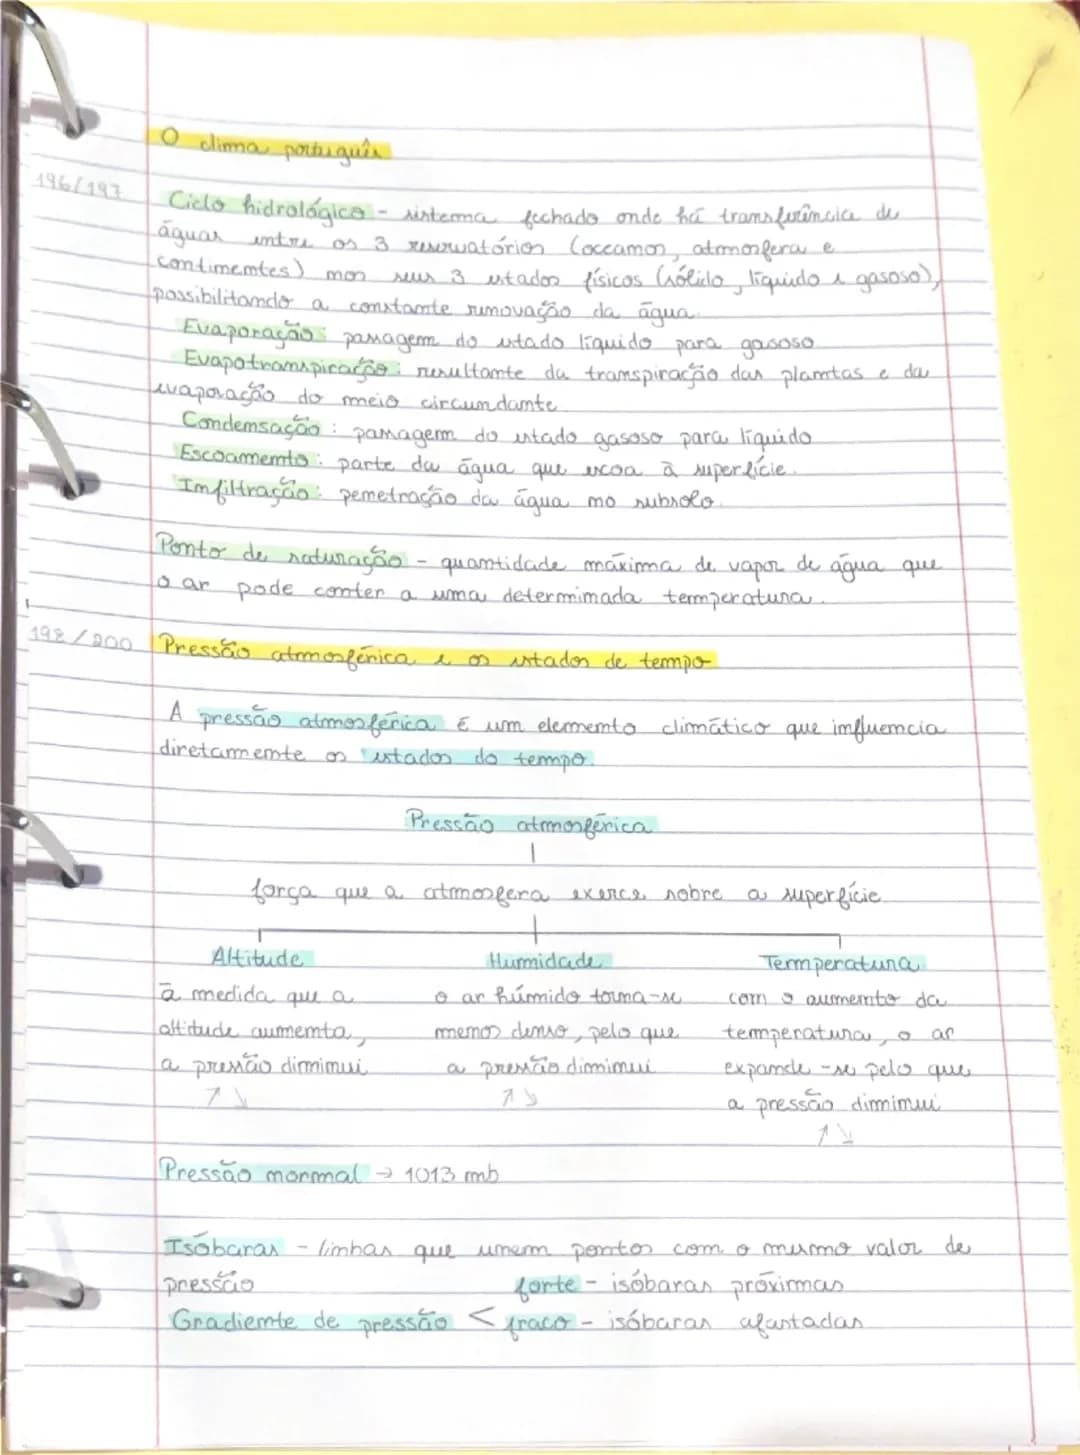 O clima português
196/197
Ciclo hidrológico - sistema fechado onde há transferência de
águas entre os 3 reservatórios (oceamos, atmosfera e
continentes) nos seus 3 estados físicos (sólido, líquido e gasoso),
possibilitando a constante renovação da água.
Evaporação: passagem do estado líquido para gasoso
Evapotranspiração: resultante da transpiração das plantas e da
evaporação do meio circundante.
Condensação: passagem do estado gasoso para líquido
Escoamento: parte da água que escoa à superfície.
Infiltração: penetração da água no subsolo.
Ponto de saturação - quantidade máxima de vapor de água que
o ar pode conter a uma determinada temperatura.
198/200 Pressão atmosférica e os estados de tempo
A pressão atmosférica é um elemento climático que influencia
diretamente os estados do tempo.
Pressão atmosférica
força que a atmosfera exerce sobre a superfície
Altitude Humidade Temperatura
à medida que a o ar húmido torna-se com o aumento da
altitude aumenta, menos denso, pelo que temperatura, o ar
a pressão diminui a pressão diminui expande-se pelo que
↗ ↘ ↗ ↘ a pressão diminui
↗ ↘
Pressão normal → 1013 mb
Isóbaras - linhas que unem pontos com o mesmo valor de
pressão forte - isóbaras próximas
Gradiente de pressão < fraco - isóbaras afastadas